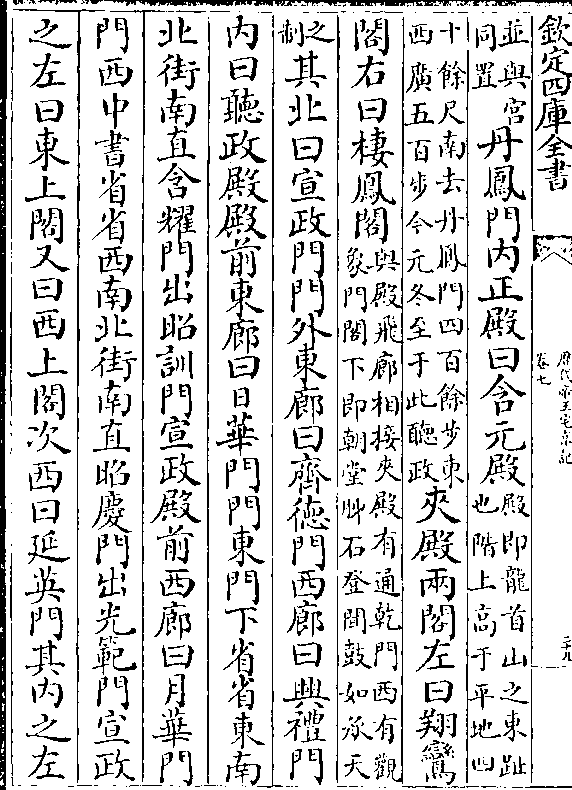 欽定四庫全書
歷代帝王宅京記
卷七
二十九
並與宮
同置
丹鳳門内正殿曰含元殿
殿即龍首山之東趾
也階上高于平地四
十餘尺南去丹鳳門四百餘步東
西廣五百步今元冬至于此聽政
夾殿兩閣左曰翔鸞
閣右曰棲鳳閣
與殿飛廊相接夾殿有通乾門西有觀
象門閣下即朝堂肺石登聞鼓如承天
之
制
其北曰宣政門門外東廊曰齊德門西廊曰興禮門
内曰聽政殿殿前東廊曰日華門門東門下省省東南
北街南直含耀門出昭訓門宣政殿前西廊曰月華門
門西中書省省西南北街南直昭慶門出光範門宣政
之左曰東上閣又曰西上閣次西曰延英門其内之左